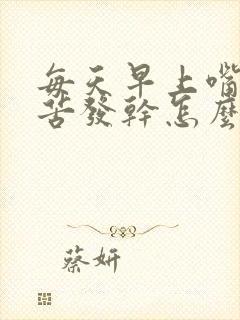 每天早上嘴
苦發幹怎麼
蔡妍